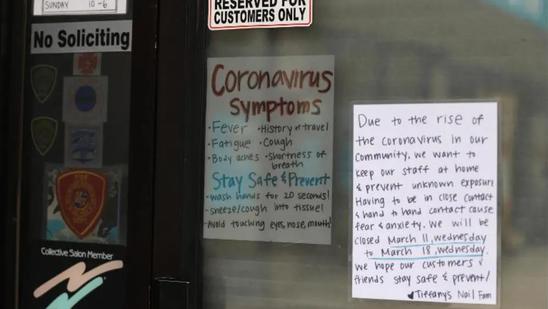 SUNDAY 10-6
RESERVED FOR
CUSTOMERS ONLY
No Soliciting
Coronavirus
Symptoms
• Fever • History of travel
• Fatigue • Cough
• Body aches • Shortness of
breath
Stay Safe & Prevent
• wash hands for 20 seconds!
• sneeze/cough into tissue!
Avoid touching eyes, nose, mouth!
Due to the rise of
the coronavirus in our
community, we want to
keep our staff at home
& prevent unknown exposure
Having to be in close contact
& hand to hand contact cause
fear & anxiety. We will be
closed March 11, wednesday
to March 18, wednesday.
we hope our customers &
friends stay safe & prevent!
♥ Tiffany's Nail Fam
Collective Salon Member